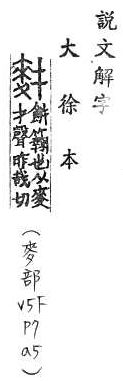 說文解字
大徐本
餅𥶶也从麥
才聲昨哉切
(麥部v5F P7 a5)